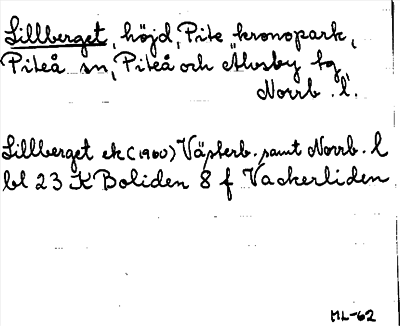 Lillberget, höjd, Pite kronopark,
Piteå sn, Piteå och Älvsby tg
Norrb. l.
Lillberget ek (1960) Västerb. samt Norrb. l
bl 23 K Boliden 8 f Vackerliden
ML-62